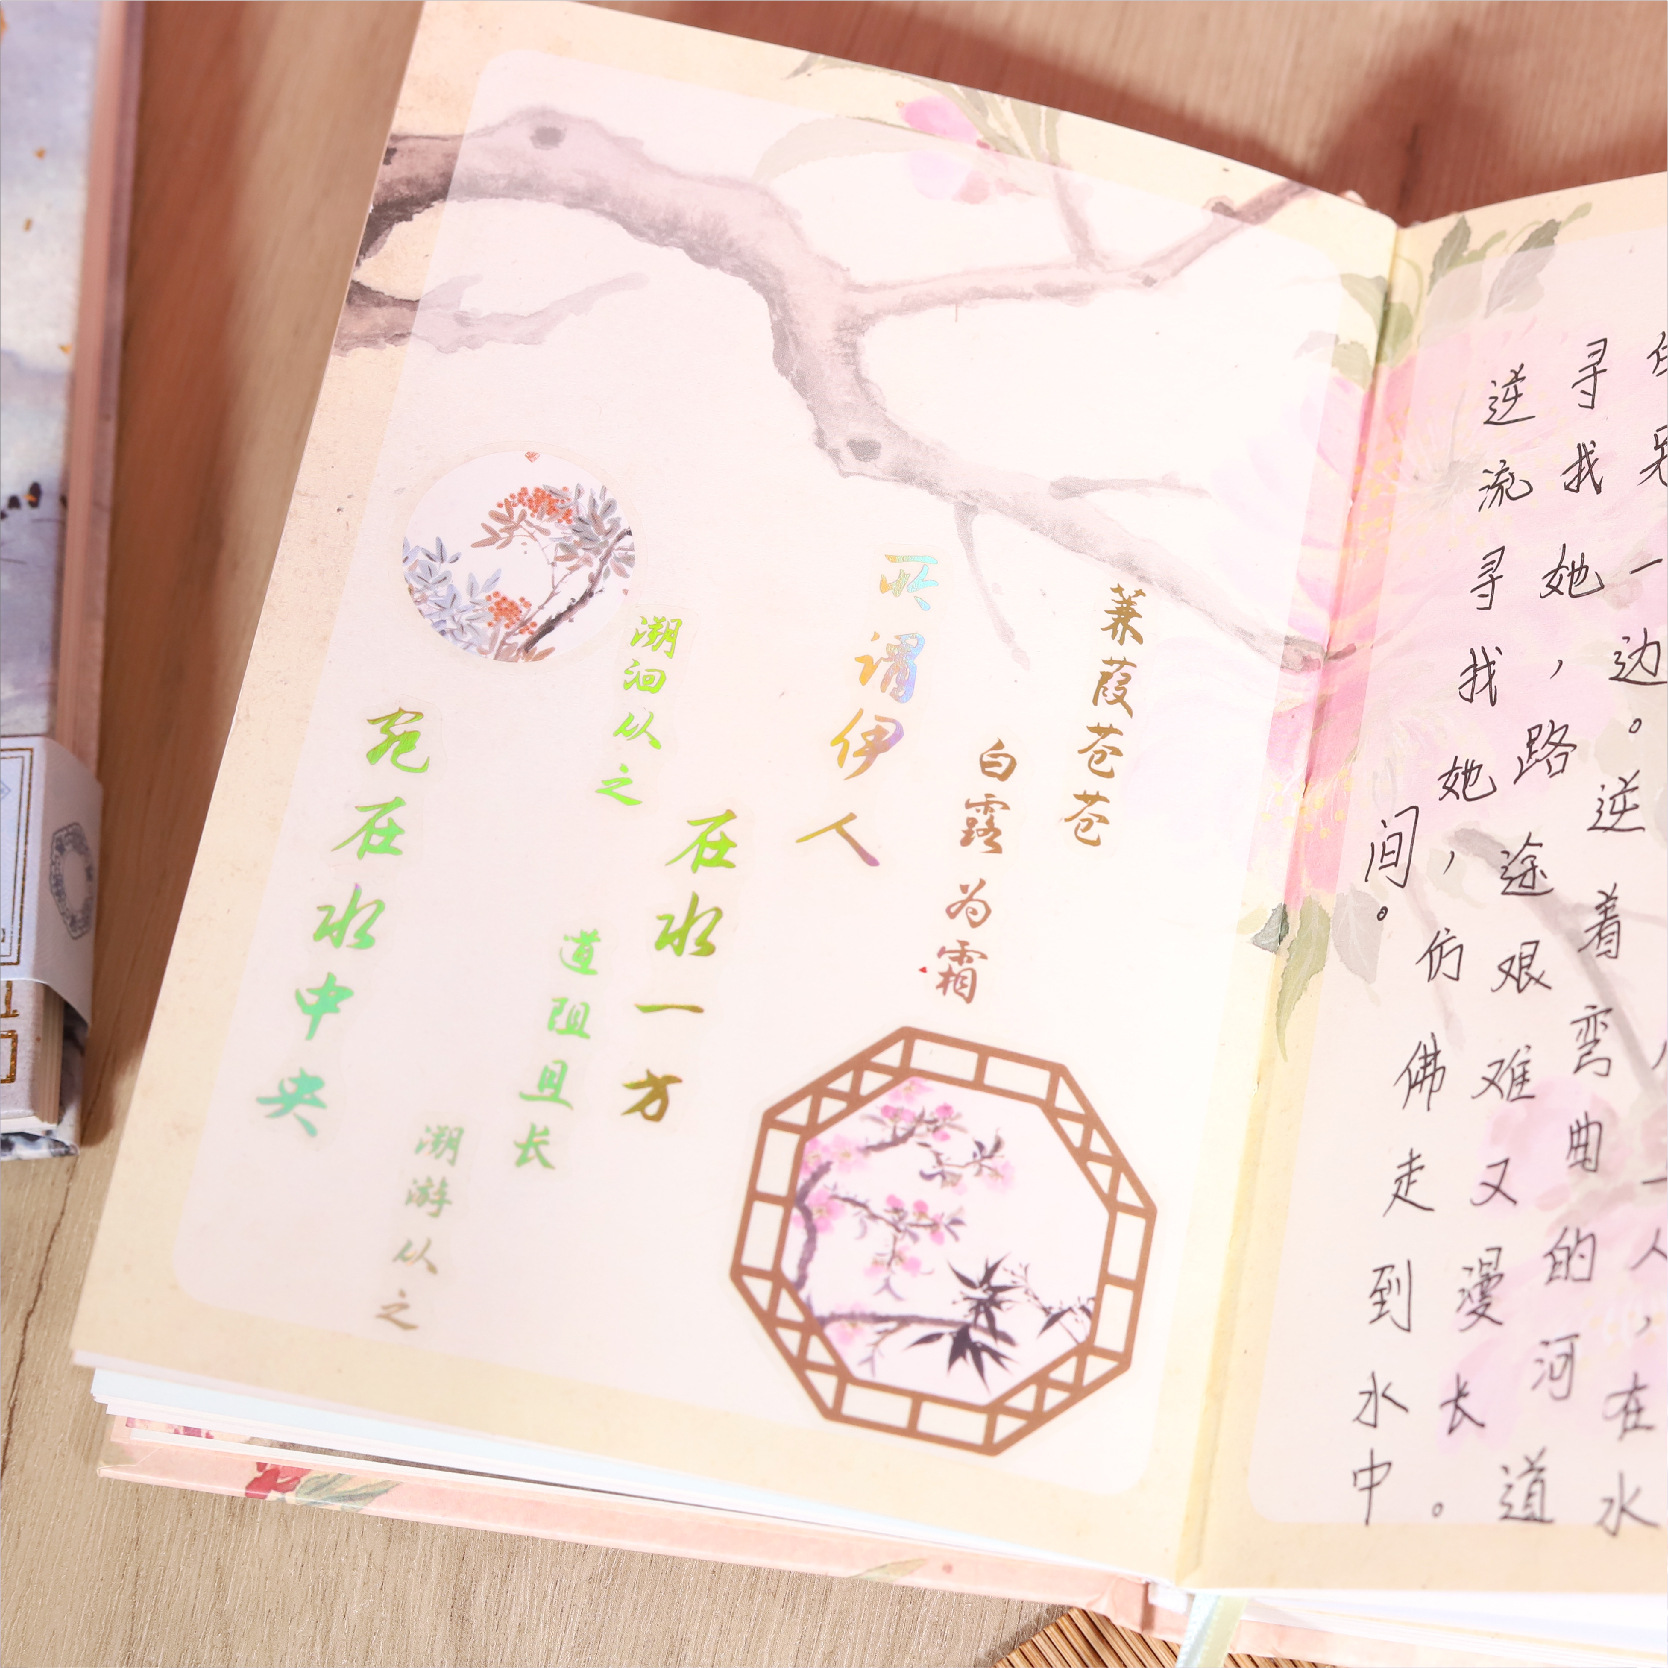 蒹葭苍苍
白露为霜
所谓伊人
在水一方
溯洄从之
道阻且长
溯游从之
宛在水中央
，在水
一边。逆着弯曲的河道
寻找她，路途艰难又漫长。
逆流寻找她，仿佛走到水中
间。